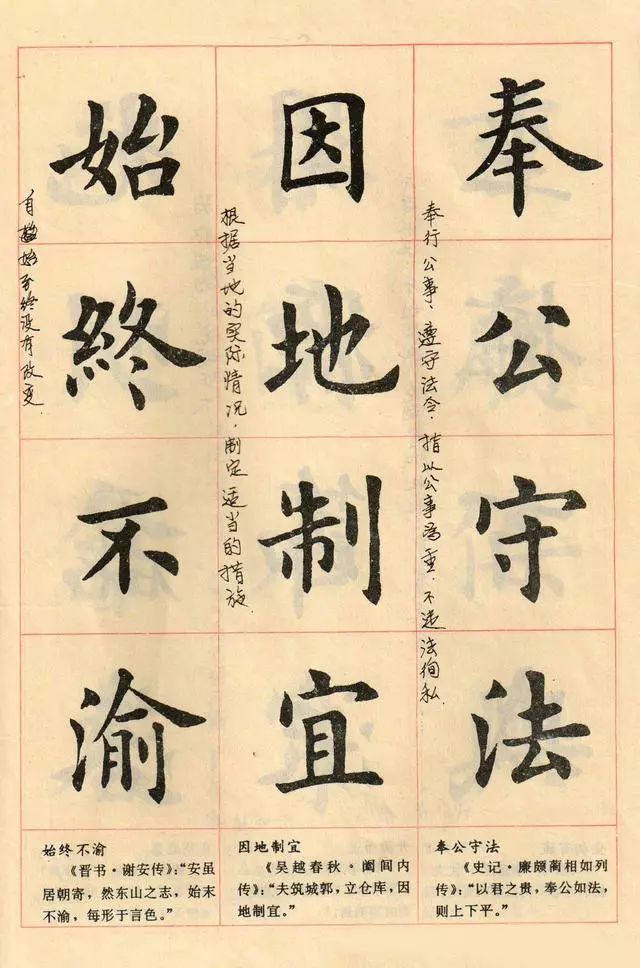 奉公守法
奉行公事、遵守法令，指以公事為重，不违法徇私.
因地制宜
根据当地的实际情况，制定适当的措施.
始終不渝
自始至终没有改变.
奉公守法
《史记·廉颇蔺相如列
传》：“以君之贵，奉公如法，
则上下平。”
因地制宜
《吴越春秋·阖闾内
传》：“夫筑城郭，立仓库，因
地制宜。”
始终不渝
《晋书·谢安传》：“安虽
居朝寄，然东山之志，始末
不渝，每形于言色。”